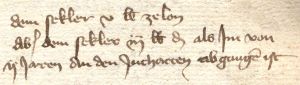 dem sekler v lb ze lon
Ab dem sekler iij lb d als Im von
ij Jaren an den Jucharten abgangē ist